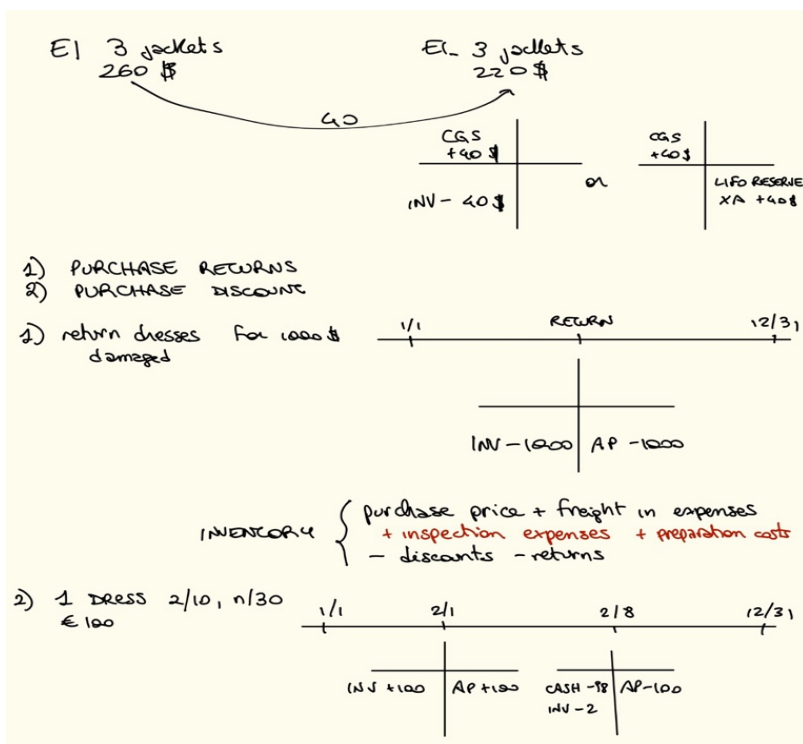 EI 3 jackets
260 $
EI_ 3 jackets
220 $
40
CGS
+40 $
INV - 40 $
or
CGS
+40 $
LIFO RESERVE
XA +40 $
1) PURCHASE RETURNS
2) PURCHASE DISCOUNT
1) return dresses for 1000 $
damaged
1/1 RETURN 12/31
INV -1000 AP -1000
INVENTORY
purchase price + freight in expenses
+ inspection expenses + preparation costs
- discounts - returns
2) 1 DRESS 2/10, n/30
€ 100
1/1 2/1 2/8 12/31
INV +100 AP +100 CASH -98 AP -100
INV -2